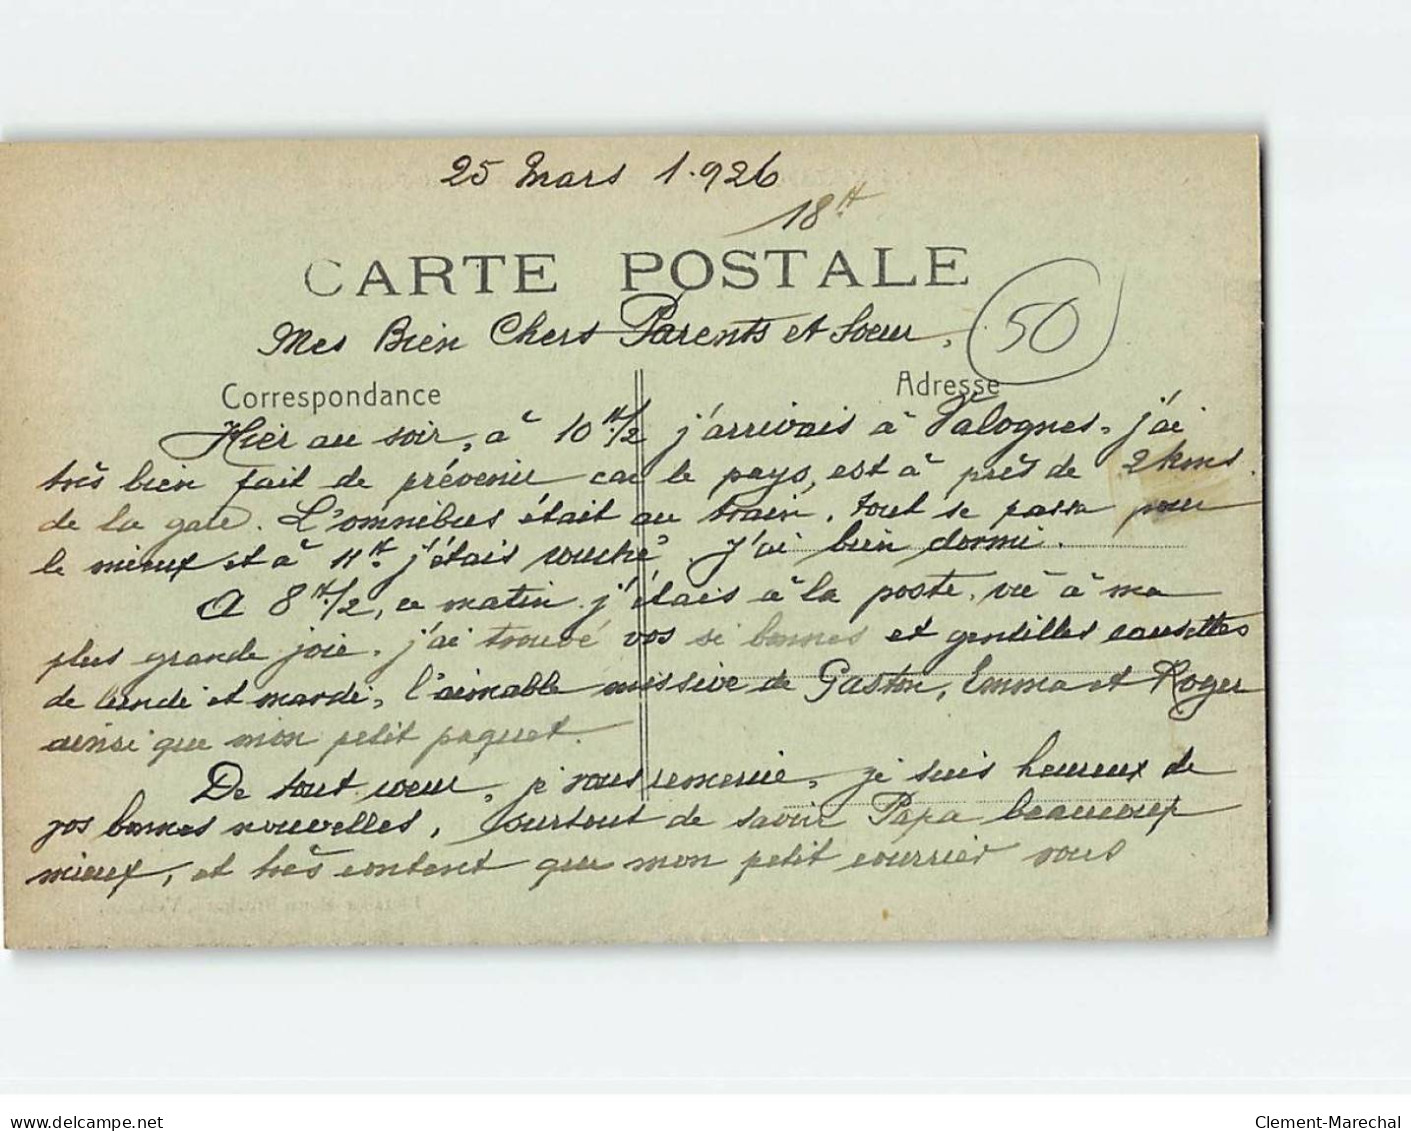 25 Mars 1.926
18H
CARTE POSTALE
Mes Bien Chers Parents et Soeur,
50
Correspondance
Adresse
Hier au soir, à 10H1/2 j'arrivais à Valognes, j'ai
très bien fait de prévenir car le pays, est à près de 2 kms.
de la gare. L'omnibus était au train, tout se passa pour
le mieux et à 11H. j'étais couché. J'ai bien dormi.
A 8H1/2, ce matin j'étais à la poste, où à ma
plus grande joie, j'ai trouvé vos si bonnes et gentilles causettes
de lundi et mardi, l'aimable missive de Gaston, Emma et Roger
ainsi que mon petit paquet.
De tout coeur, je vous remercie, je suis heureux de
vos bonnes nouvelles, surtout de savoir Papa beaucoup
mieux, et très content que mon petit courrier vous
www.delcampe.net
Clement-Marechal